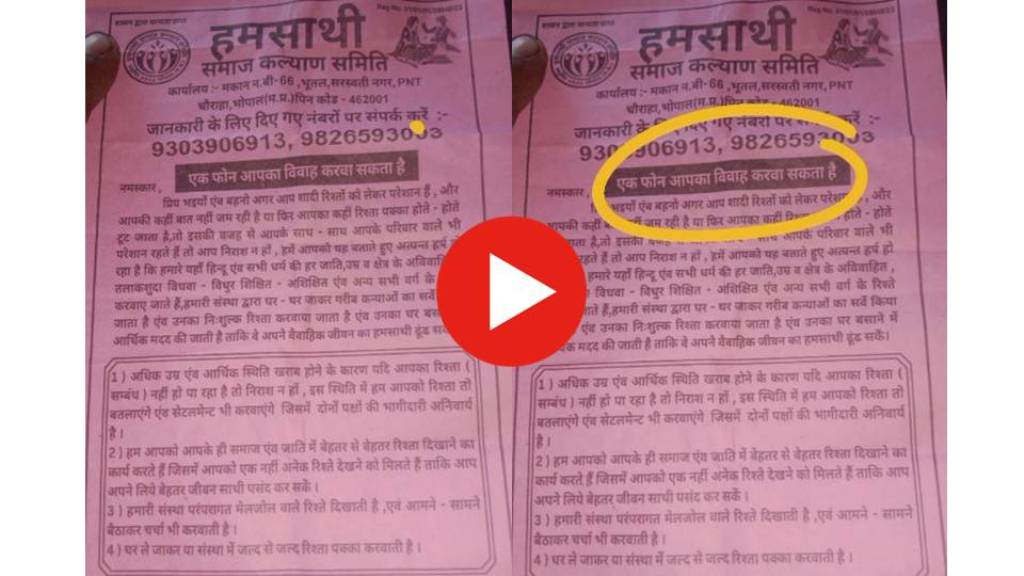 शासन द्वारा मान्यता प्राप्त
हमसाथी
समाज कल्याण समिति
कार्यालय :- मकान न.बी-66 ,भूतल,सरस्वती नगर,PNT
चौराहा,भोपाल(म.प्र.)पिन कोड - 462001
जानकारी के लिए दिए गए नंबरों पर संपर्क करें :-
9303906913, 9826593003
एक फोन आपका विवाह करवा सकता है
नमस्कार ,
प्रिय भइयों एंव बहनो अगर आप शादी रिश्तों को लेकर परेशान हैं , और
आपकी कही बात नहीं जम रही है या फिर आपका कहीं रिश्ता पक्का होते - होते
टूट जाता है,तो इसकी वजह से आपके साथ - साथ आपके परिवार वाले भी
परेशान रहते हैं तो आप निराश न हों , हमें आपको यह बताते हुए अत्यन्त हर्ष हो
रहा है कि हमारे यहाँ हिन्दू एंव सभी धर्म की हर जाति,उम्र व क्षेत्र के अविवाहित
तलाकशुदा विधवा - विधुर शिक्षित - अशिक्षित एंव अन्य सभी वर्ग के
करवाए जाते हैं,हमारी संस्था द्वारा घर - घर जाकर गरीब कन्याओं का सर्वे
जाता है एंव उनका निःशुल्क रिश्ता करवाया जाता है एंव उनका घर बसाने
आर्थिक मदद की जाती है ताकि वे अपने वैवाहिक जीवन का हमसाथी ढूंढ सकें
1 ) अधिक उम्र एंव आर्थिक स्थिति खराब होने के कारण यदि आपका रिश्ता (
सम्बंध ) नहीं हो पा रहा है तो निराश न हों , इस स्थिति में हम आपको रिश्ता तो
बतलाएंगे एंव सेटलमेन्ट भी करवाएंगे जिसमें दोनों पक्षों की भागीदारी अनिवार्य
है ।
2 ) हम आपको आपके ही समाज एंव जाति में बेहतर से बेहतर रिश्ता दिखाने का
कार्य करते हैं जिसमें आपको एक नहीं अनेक रिश्ते देखने को मिलते हैं ताकि आप
अपने लिये बेहतर जीवन साथी पसंद कर सकें ।
3 ) हमारी संस्था परंपरागत मेलजोल वाले रिश्ते दिखाती है ,एवं आमने - सामने
बैठाकर चर्चा भी करवाती है ।
4 ) घर ले जाकर या संस्था में जल्द से जल्द रिश्ता पक्का करवाती है ।
हमसाथी
समाज कल्याण समिति
कार्यालय :- मकान न.बी-66 ,भूतल,सरस्वती नगर,PNT
चौराहा,भोपाल(म.प्र.)पिन कोड - 462001
जानकारी के लिए दिए गए नंबरों पर संपर्क करें :-
9303906913, 9826593003
एक फोन आपका विवाह करवा सकता है
नमस्कार
भइयों एंव बहनो अगर आप शादी रिश्तों को लेकर परेशान , और
आपकी कही नहीं जम रही है या फिर आपका कहीं रिश्ता होते - होते
टूट जाता है,तो इसकी वजह आपके परिवार वाले भी
रहते हैं तो आप निराश न हों , हमें आपको यह बताते हुए अत्यन्त हर्ष हो
हमारे यहाँ हिन्दू एंव सभी धर्म की हर जाति,उम्र व क्षेत्र के अविवाहित ,
विधवा - विधुर शिक्षित - अशिक्षित एंव अन्य सभी वर्ग के रिश्ते
जाते हैं,हमारी संस्था द्वारा घर - घर जाकर गरीब कन्याओं का सर्वे किया
एंव उनका निःशुल्क रिश्ता करवाया जाता है एंव उनका घर बसाने में
मदद की जाती है ताकि वे अपने वैवाहिक जीवन का हमसाथी ढूंढ सकें।
1 ) अधिक उम्र एंव आर्थिक स्थिति खराब होने के कारण यदि आपका रिश्ता (
सम्बंध ) नहीं हो पा रहा है तो निराश न हों , इस स्थिति में हम आपको रिश्ता तो
बतलाएंगे एंव सेटलमेन्ट भी करवाएंगे जिसमें दोनों पक्षों की भागीदारी अनिवार्य
है ।
2 ) हम आपको आपके ही समाज एंव जाति में बेहतर से बेहतर रिश्ता दिखाने का
कार्य करते हैं जिसमें आपको एक नहीं अनेक रिश्ते देखने को मिलते हैं ताकि आप
अपने लिये बेहतर जीवन साथी पसंद कर सकें ।
3 ) हमारी संस्था परंपरागत मेलजोल वाले रिश्ते दिखाती है ,एवं आमने - सामने
बैठाकर चर्चा भी करवाती है ।
4 ) घर ले जाकर या संस्था में जल्द से जल्द रिश्ता पक्का करवाती है ।